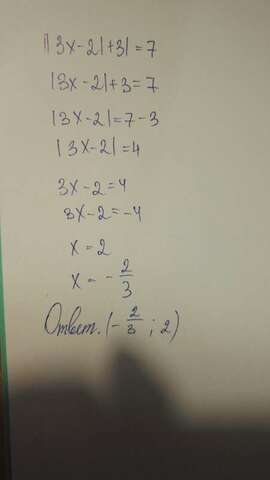 ||3x-2|+3|=7
|3x-2|+3=7
|3x-2|=7-3
|3x-2|=4
3x-2=4
3x-2=-4
x=2
x=-2/3
Ответ. (-2/3; 2)